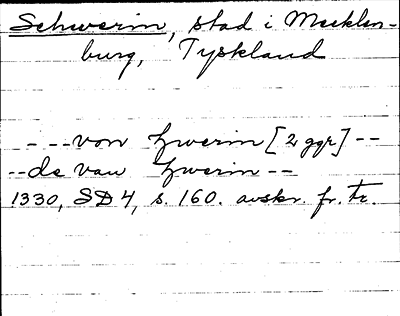 Schwerin, stad i Mecklen-
burg, Tyskland
- --von Zwerin [2 ggr] --
--de van Zwerin --
1330, SD 4, s. 160. avskr. fr. tr.